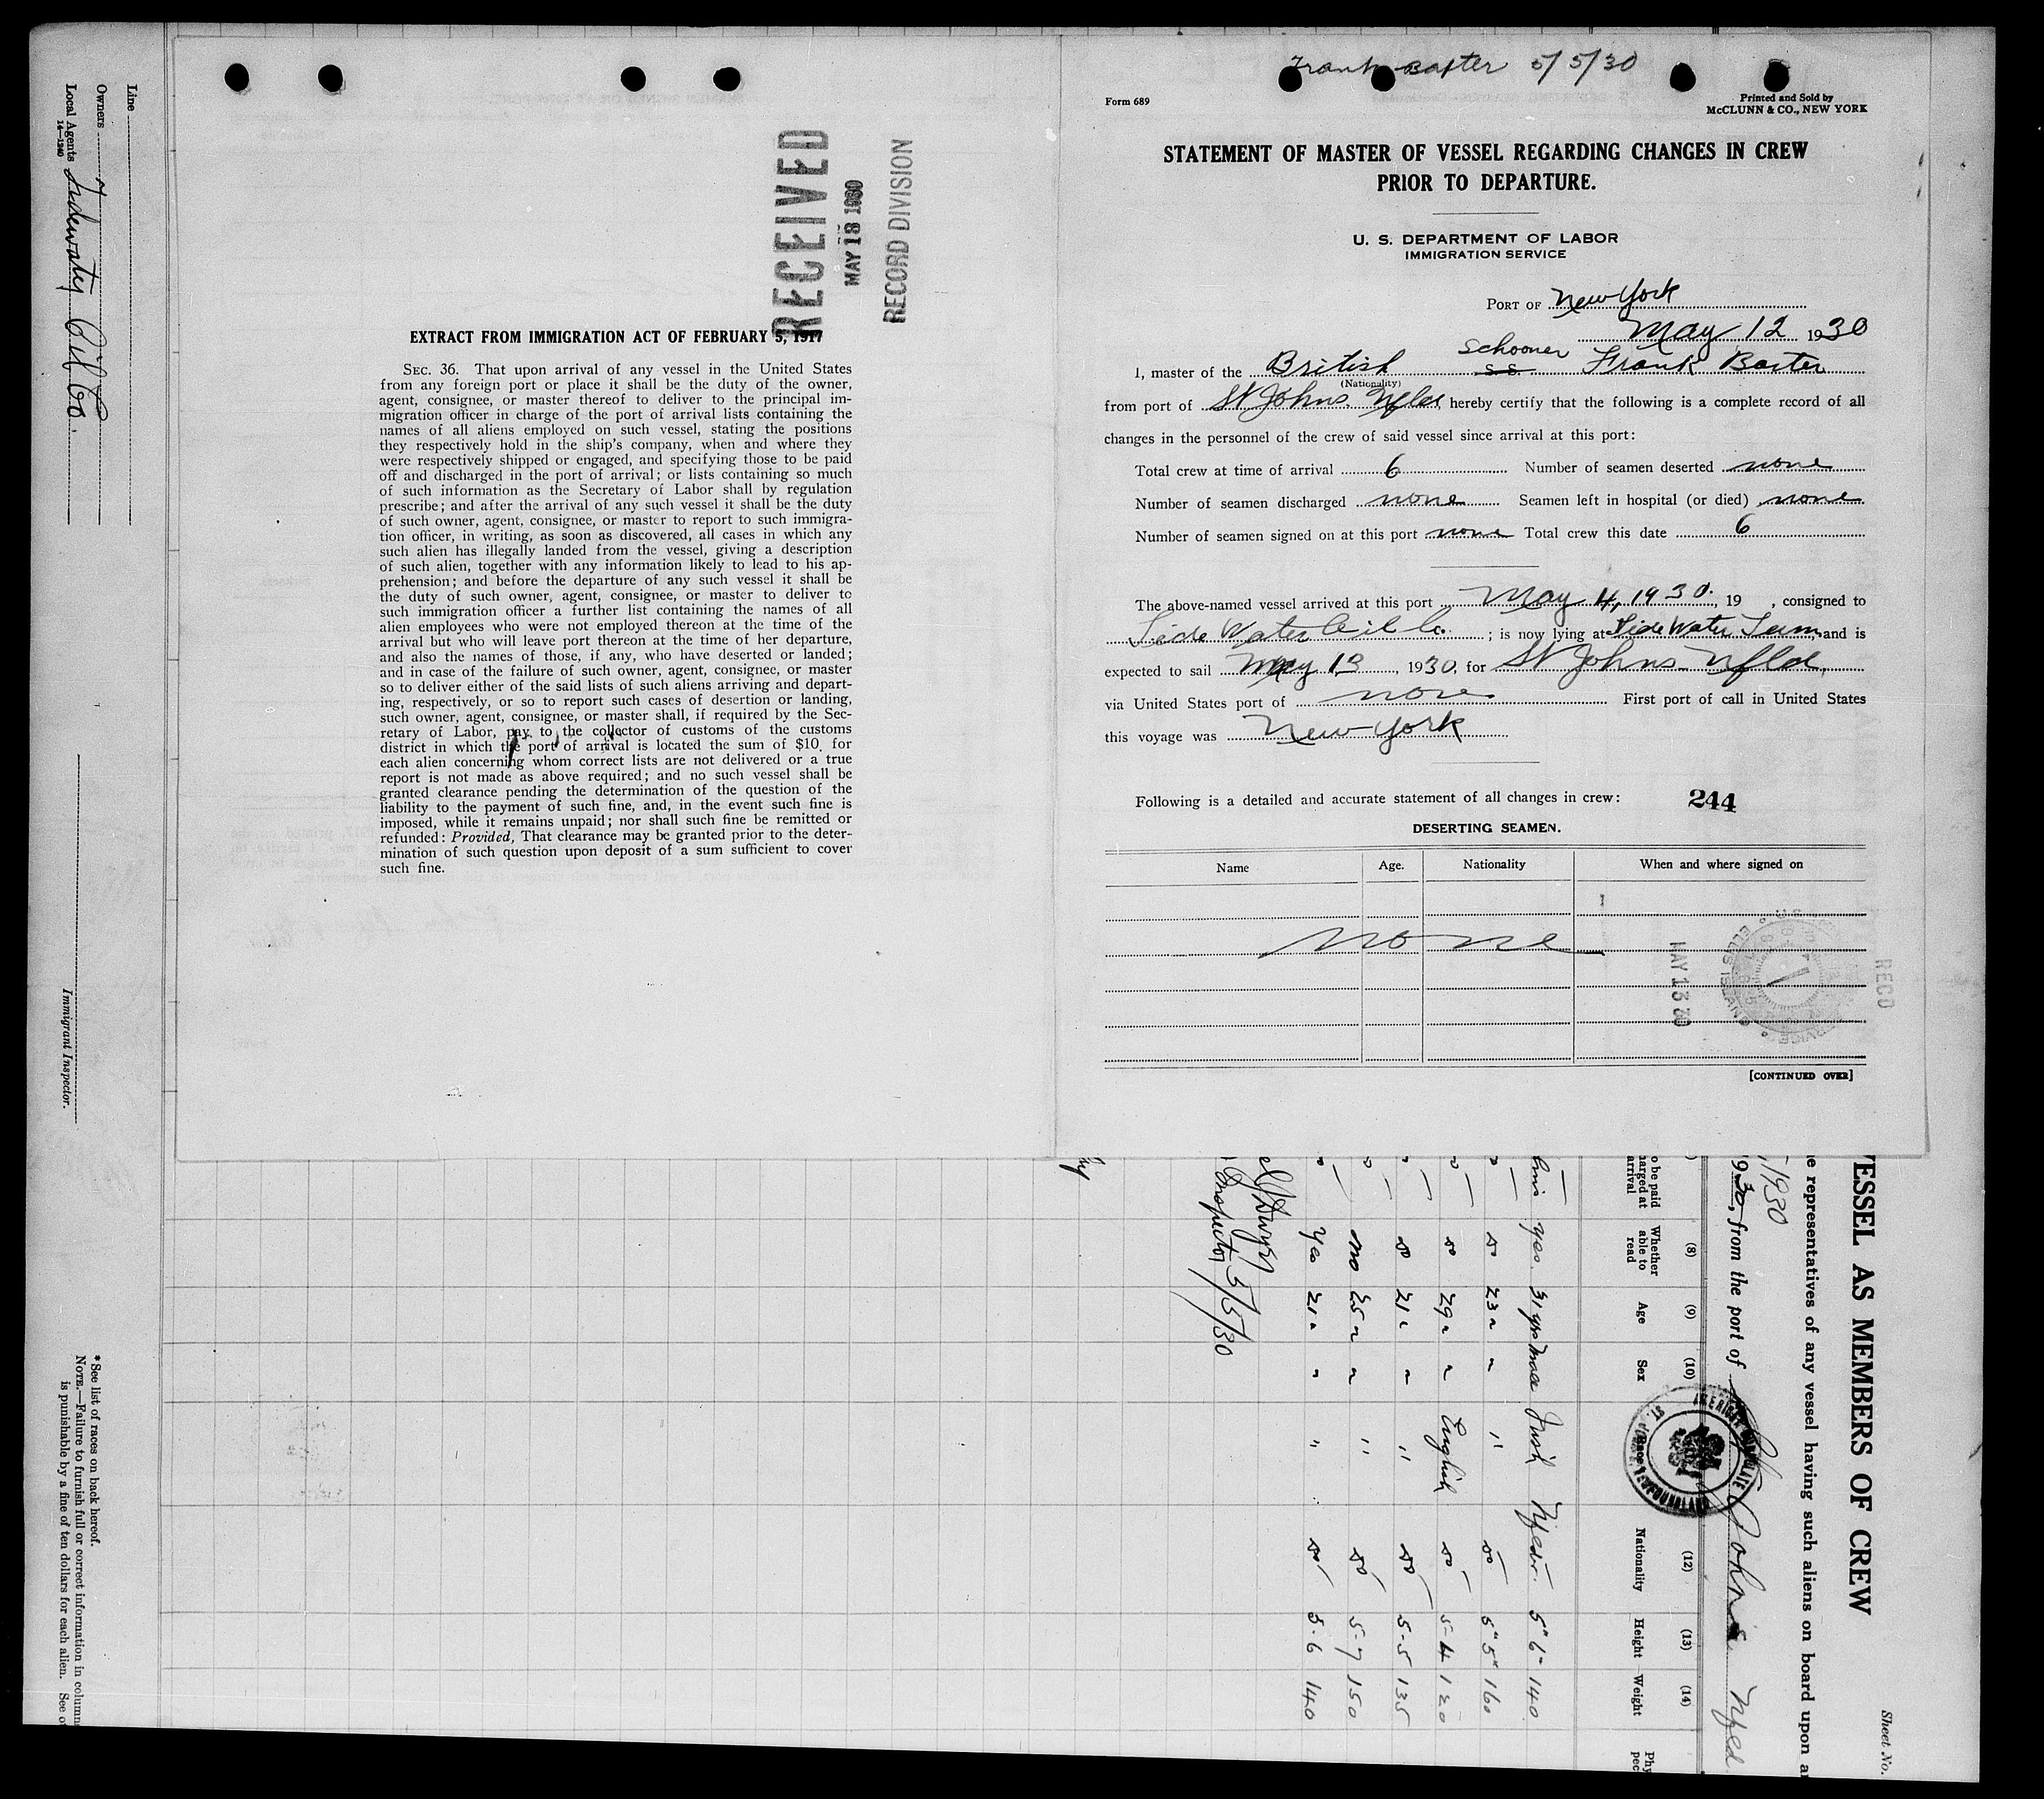 Line
Owners
Local Agents Tidewater Oil Co.
14—1240
Immigrant Inspector.
* See list of races on back hereof.
NOTE.—Failure to furnish full or correct information in columns
is punishable by a fine of ten dollars for each alien. See
RECEIVED
MAY 18 1930
RECORD DIVISION
EXTRACT FROM IMMIGRATION ACT OF FEBRUARY 5, 1917
SEC. 36. That upon arrival of any vessel in the United States
from any foreign port or place it shall be the duty of the owner,
agent, consignee, or master thereof to deliver to the principal im-
migration officer in charge of the port of arrival lists containing the
names of all aliens employed on such vessel, stating the positions
they respectively hold in the ship's company, when and where they
were respectively shipped or engaged, and specifying those to be paid
off and discharged in the port of arrival; or lists containing so much
of such information as the Secretary of Labor shall by regulation
prescribe; and after the arrival of any such vessel it shall be the duty
of such owner, agent, consignee, or master to report to such immigra-
tion officer, in writing, as soon as discovered, all cases in which any
such alien has illegally landed from the vessel, giving a description
of such alien, together with any information likely to lead to his ap-
prehension; and before the departure of any such vessel it shall be
the duty of such owner, agent, consignee, or master to deliver to
such immigration officer a further list containing the names of all
alien employees who were not employed thereon at the time of the
arrival but who will leave port thereon at the time of her departure,
and also the names of those, if any, who have deserted or landed;
and in case of the failure of such owner, agent, consignee, or master
so to deliver either of the said lists of such aliens arriving and depart-
ing, respectively, or so to report such cases of desertion or landing,
such owner, agent, consignee, or master shall, if required by the Sec-
retary of Labor, pay to the collector of customs of the customs
district in which the port of arrival is located the sum of $10 for
each alien concerning whom correct lists are not delivered or a true
report is not made as above required; and no such vessel shall be
granted clearance pending the determination of the question of the
liability to the payment of such fine, and, in the event such fine is
imposed, while it remains unpaid; nor shall such fine be remitted or
refunded: Provided, That clearance may be granted prior to the deter-
mination of such question upon deposit of a sum sufficient to cover
such fine.
Frank Baxter 5/5/30
Form 689
Printed and Sold by
McCLUNN & CO., NEW YORK
STATEMENT OF MASTER OF VESSEL REGARDING CHANGES IN CREW
PRIOR TO DEPARTURE.
U. S. DEPARTMENT OF LABOR
IMMIGRATION SERVICE
PORT OF New York
May 12 1930
I, master of the British schooner S.S. Frank Baxter
(Nationality)
from port of St Johns Nfld hereby certify that the following is a complete record of all
changes in the personnel of the crew of said vessel since arrival at this port:
Total crew at time of arrival 6 Number of seamen deserted none
Number of seamen discharged none Seamen left in hospital (or died) none
Number of seamen signed on at this port none Total crew this date 6
The above-named vessel arrived at this port May 4, 1930. 19 , consigned to
Tide Water Oil Co. ; is now lying at Tide Water and is
expected to sail May 13 , 1930, for St Johns Nfld,
via United States port of none First port of call in United States
this voyage was New York
Following is a detailed and accurate statement of all changes in crew: 244
DESERTING SEAMEN.
Name Age. Nationality When and where signed on
none
MAY 13 30
RECD
ELLIS ISLAND
[CONTINUED OVER]
Sheet No.
VESSEL AS MEMBERS OF CREW
representatives of any vessel having such aliens on board upon
1930
1930, from the port of St Johns Nfld
(8) (9) (10) (12) (13) (14)
to be paid
arrival
Whether
able to
read
Age Sex Race Nationality Height Weight
yes 31 yrs male Irish Nfedr. 5"6" 140
do 23 " " " do 5"5" 160
do 29 " " English do 5-4 120
do 21 " " " do 5-5 135
no 25 " " " do 5-7 150
yes 21 " " " do 5-6 140
Inspector 5/5/30